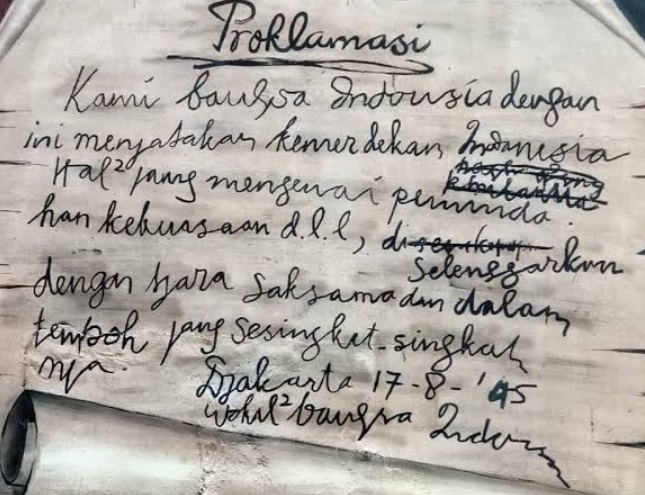 Proklamasi
Kami bangsa Indonusia dengan
ini menjatakan kemerdekan Indonesia
Hal² jang mengenai peminda
han kekuasaan d.l.l, di
selenggarkan
dengan tjara saksama dan dalam
tempoh jang sesingkat-singkat
nja.
Djakarta 17-8-'45
Wakil² bangsa Indon